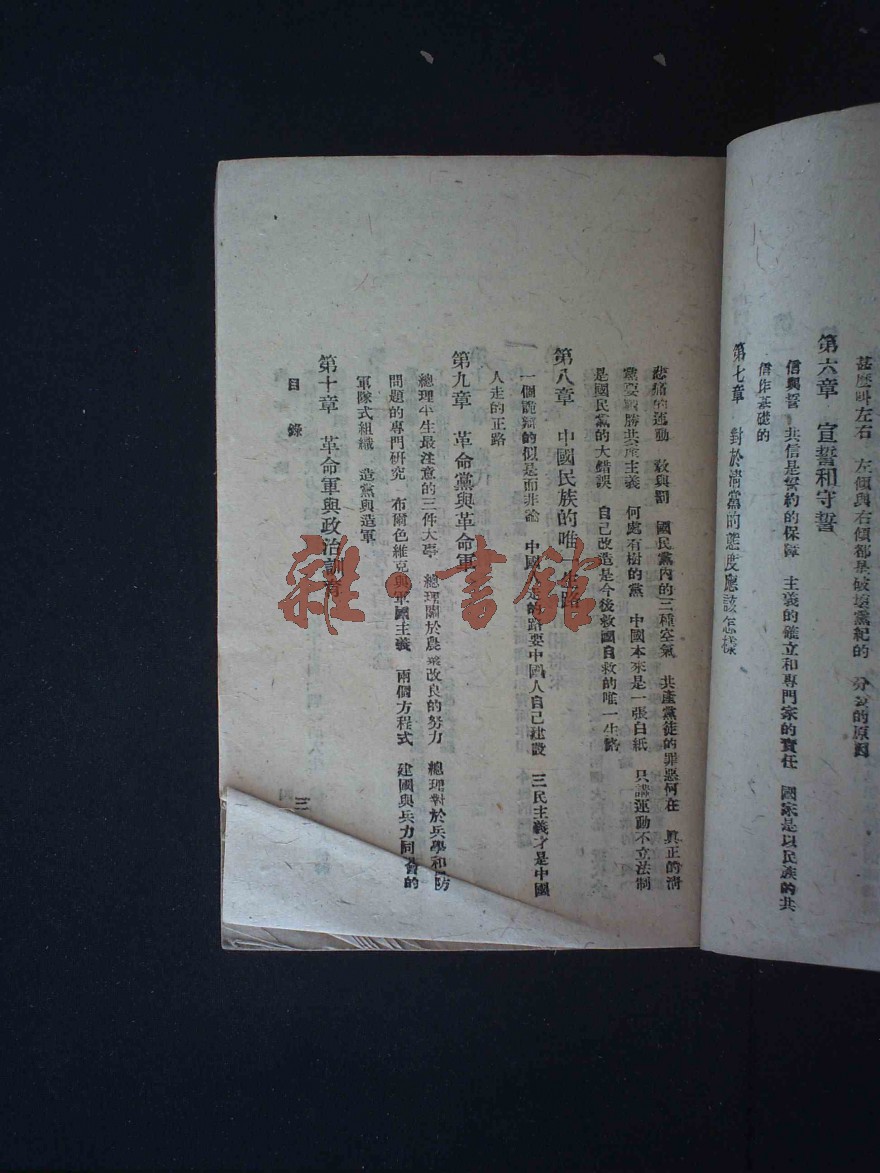 甚麽叫左右　左傾與右傾都是破壞黨紀的　分公的原因
第六章　宣誓和守誓
信與誓　共信是誓約的保障　主義的確立和專門家的責任　國家是以民族的共
信作基礎的
第七章　對於清黨的態度應該怎樣
悲痛的運動　教與罰　國民黨內的三種空氣　共產黨徒的罪惡何在　眞正的淸
黨要戰勝共產主義　何處有樹的黨　中國本來是一張白紙　只講運動不立法制
是國民黨的大錯誤　自己改造是今後救國自救的唯一生路
第八章　中國民族的唯一生路
一個嶄新的似是而非論　中國人走的路要中國人自己建設　三民主義才是中國
人走的正路
第九章　革命黨與革命軍
總理半生最注意的三件大事　總理關於農業改良的努力　總理對於兵學和國防
問題的專門研究　布爾色維克與軍國主義　兩個方程式　建國與兵力同
的
軍隊式組織　造黨與造軍
第十章　革命軍與政治訓育
目錄
三
雜·書館